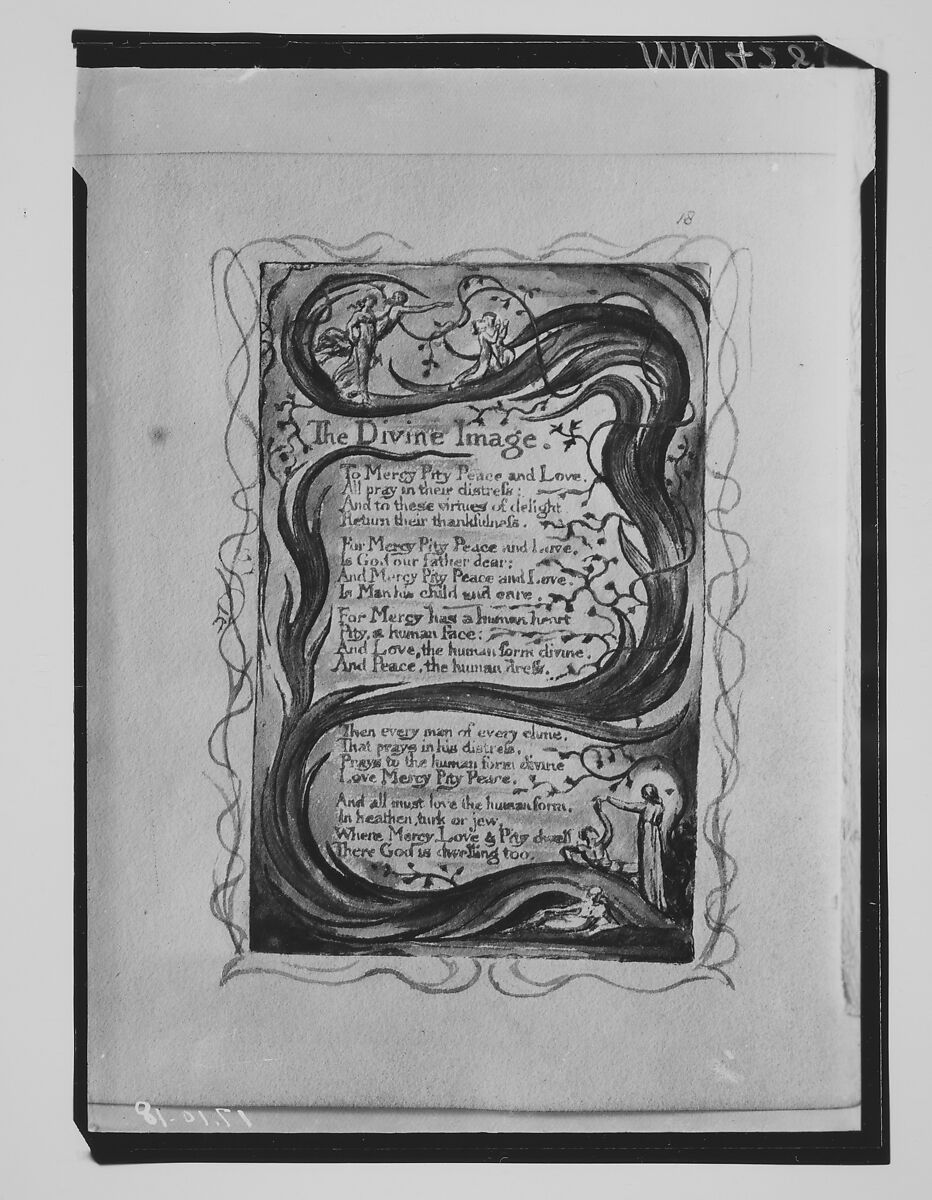 WW428
18
The Divine Image.
To Mercy Pity Peace and Love,
All pray in their distreſs:
And to these virtues of delight
Return their thankfulneſs.
For Mercy Pity Peace and Love,
Is God our father dear:
And Mercy Pity Peace and Love,
Is Man his child and care.
For Mercy has a human heart
Pity, a human face:
And Love, the human form divine,
And Peace, the human dreſs.
Then every man of every clime,
That prays in his distreſs,
Prays to the human form divine
Love Mercy Pity Peace.
And all must love the human form,
In heathen, turk or jew.
Where Mercy, Love & Pity dwell
There God is dwelling too.
17.10.18